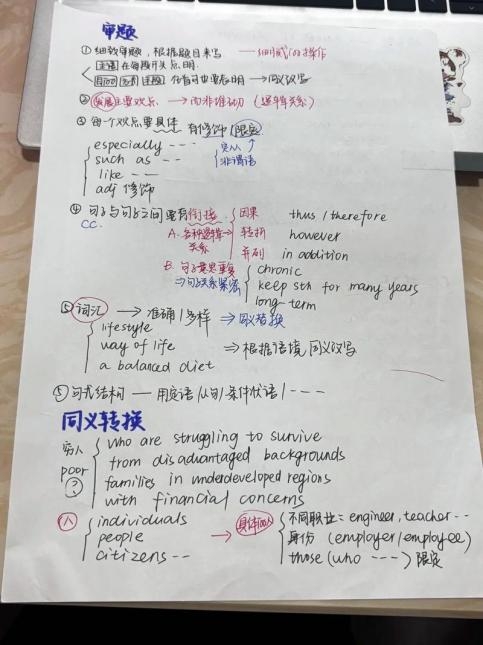 审题
① 细致审题，根据题目来写 —— 细则/式的操作
主题 在每段开头点明
目的 主题 后者也要表明 → 同义改写
② 发展主要观点 → 而非堆砌 (逻辑关系)
③ 每一个观点要具体 有修饰 限定
especially - - - 定从
such as - - 非谓语
like - -
adj 修饰
④ 句子与句子之间要有衔接 因果 thus / therefore
CC. A. 各种逻辑关系 → 转折 however
并列 in addition
B. 句子意思重复 chronic
⇒ 句子关系紧密 keep sth for many years
long-term
⑤ 词汇 → 准确/多样 ⇒ 同义替换
lifestyle
way of life ⇒ 根据语境同义改写
a balanced diet
⑤ 句式结构 — 用定语/从句/条件状语/ - - - -
同义转换
穷人 who are struggling to survive
poor from disadvantaged backgrounds
? families in underdeveloped regions
with financial concerns
人 individuals 不同职业: engineer, teacher - -
people → 具体的人 身份 (employer/employee)
citizens - - those (who - - - ) 限定